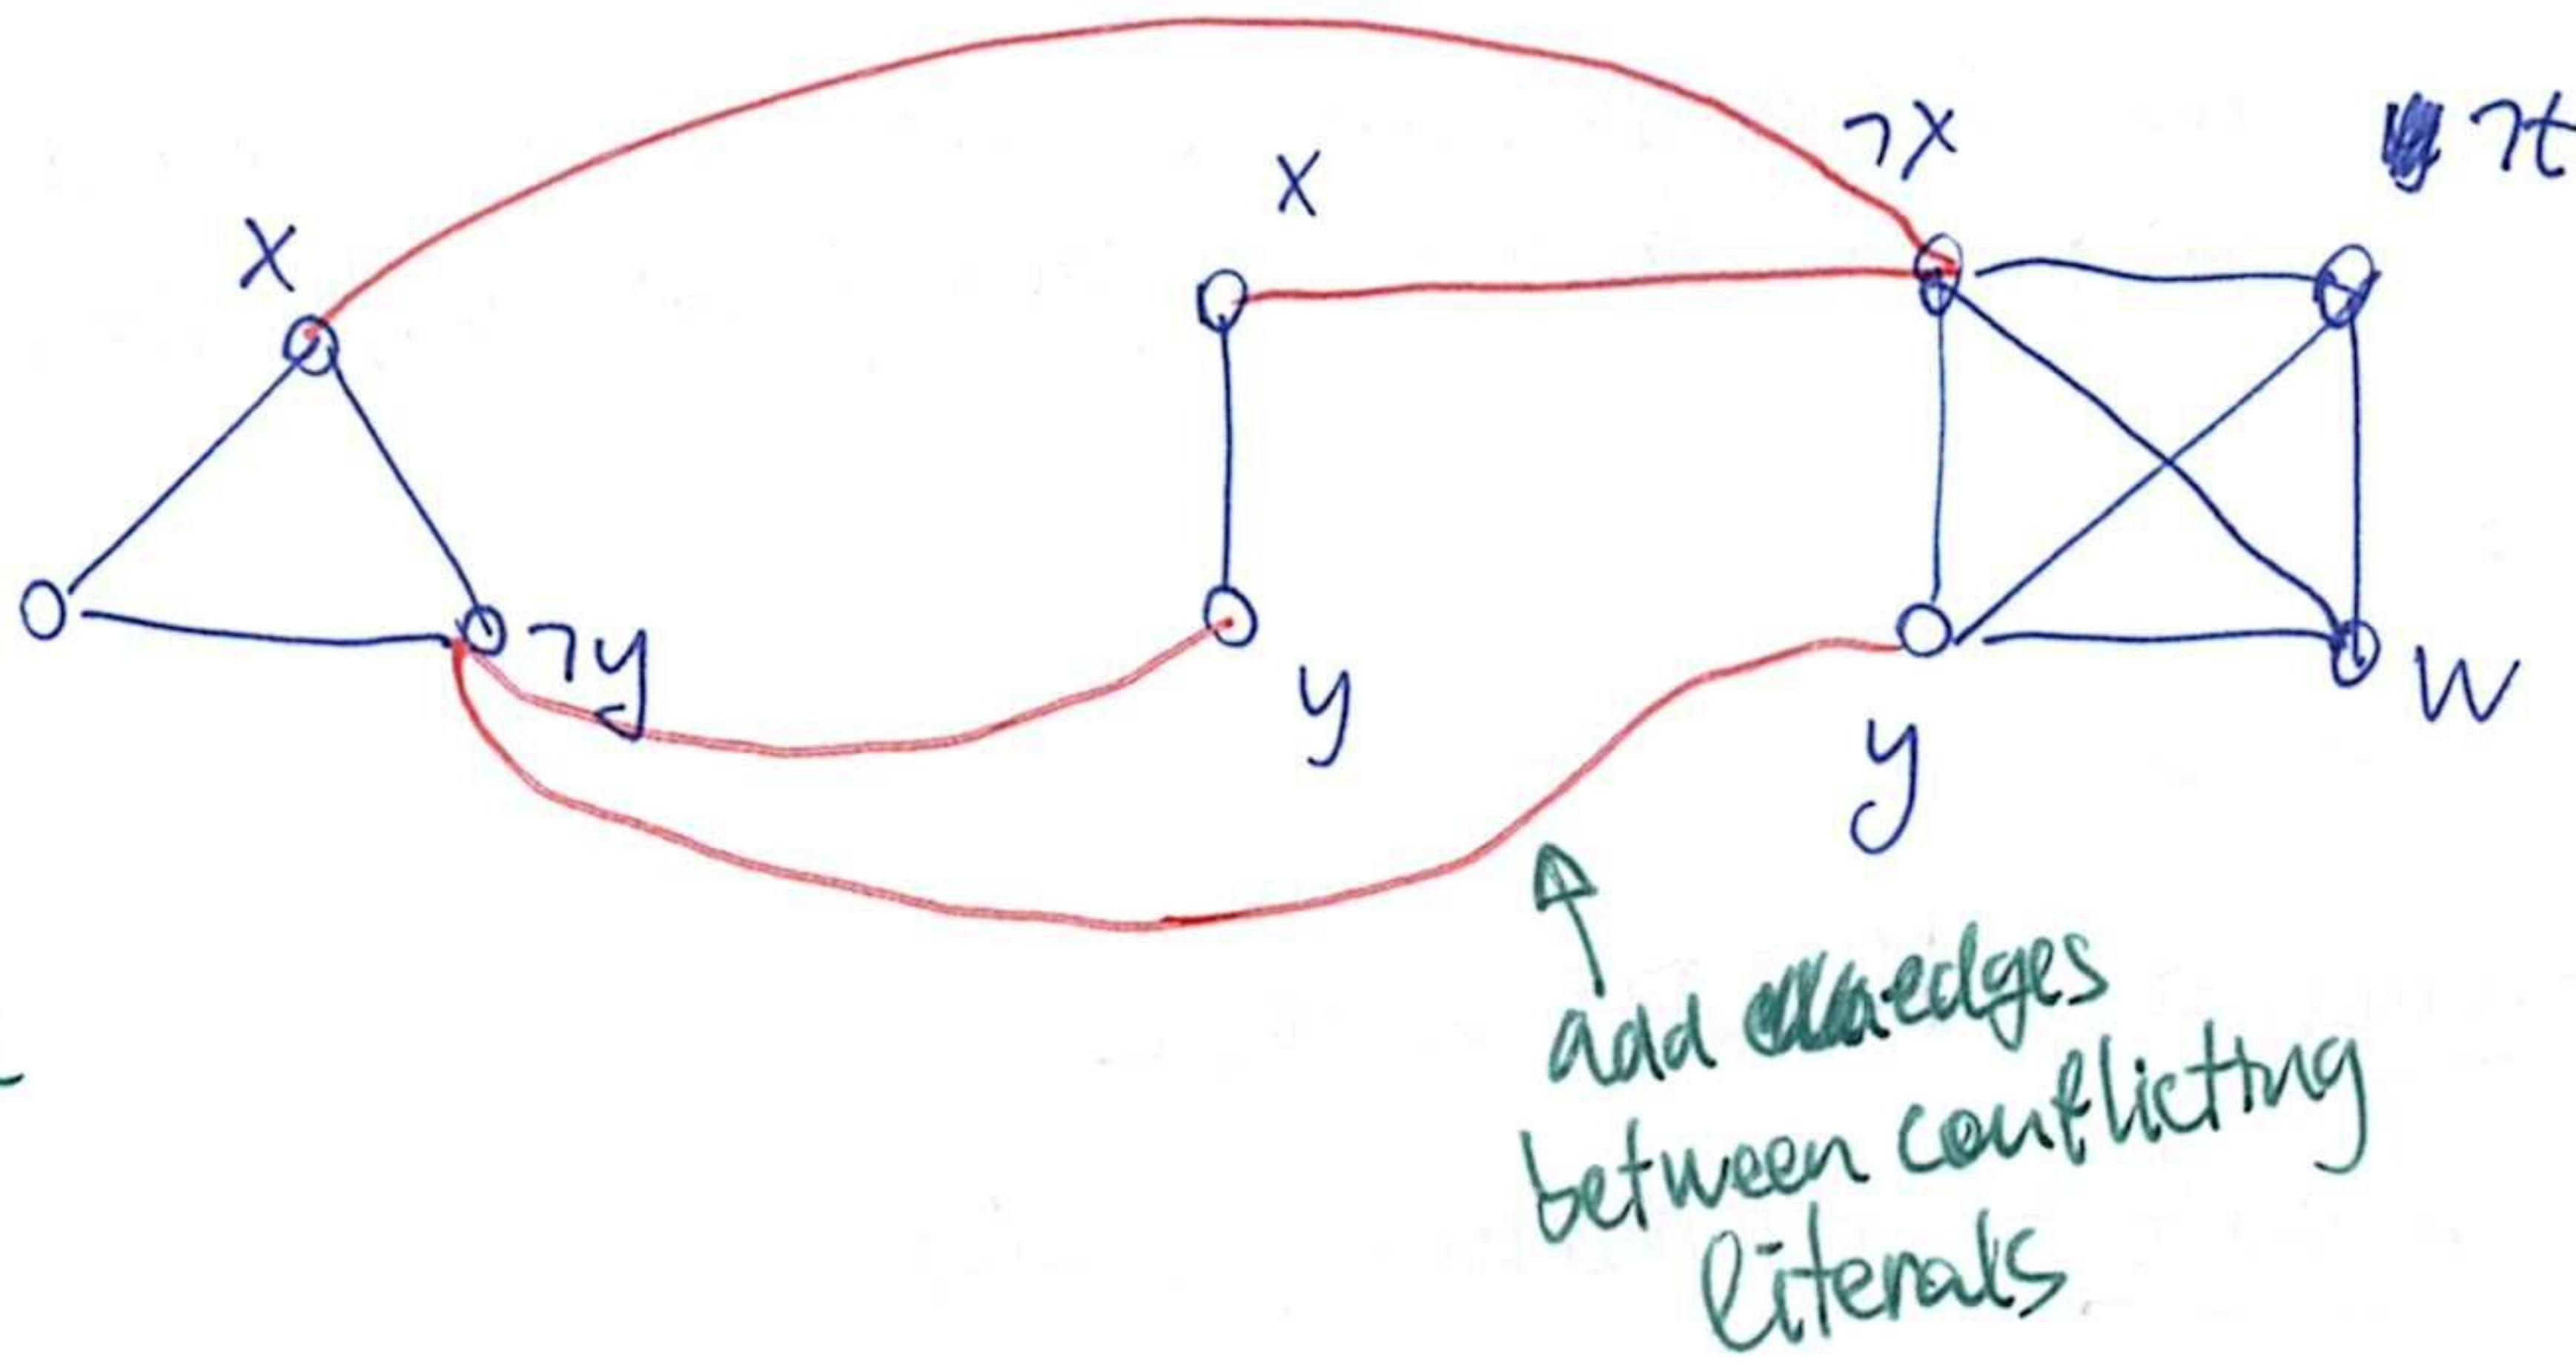 x
x
¬x
¬t
¬y
y
y
w
add edges
between conflicting
literals